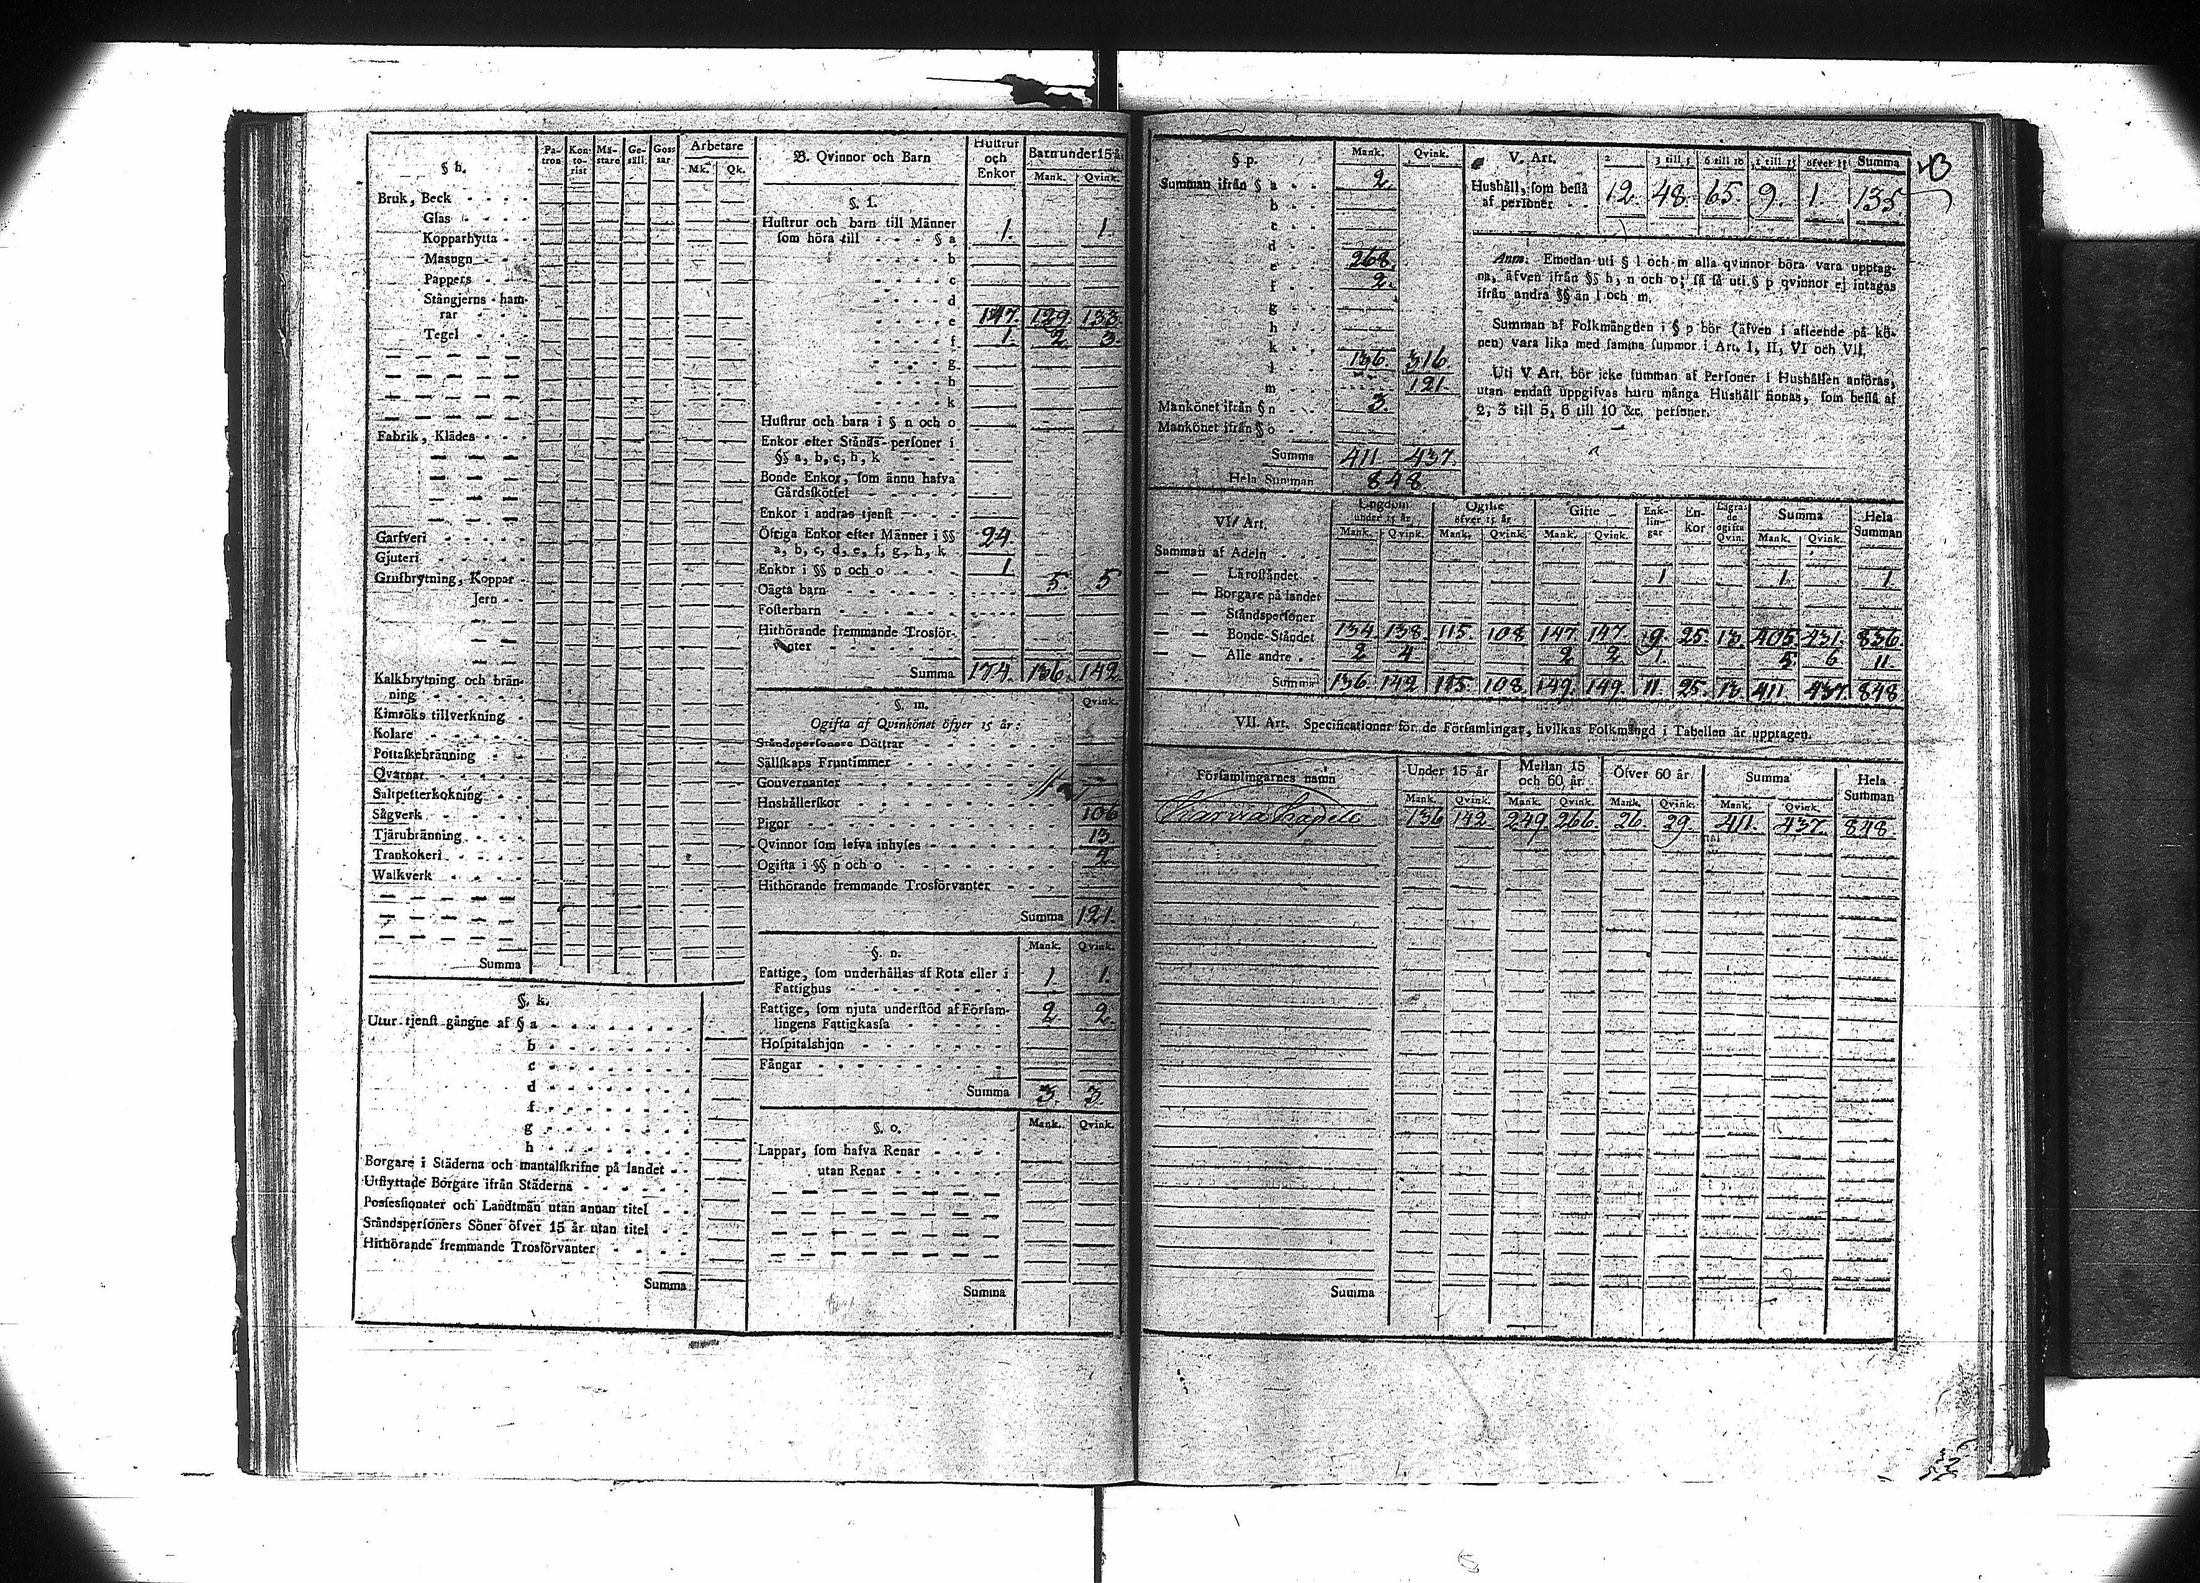 § h.
Pa-tron Kon-to-rist Mä-stare Ge-säll. Gos-sar Arbetare
Mk. Qk.
Bruk, Beck
Glas
Kopparhytta
Masugn
Pappers
Stångjerns-ham-
rar
Tegel
Fabrik, Klädes
Garfveri
Gjuteri
Grufbrytning, Koppar
Jern
Kalkbrytning och brän-
ning
Kimröks tillverkning
Kolare
Pottaskebränning
Qvarnar
Saltpetterkokning
Sågverk
Tjärubränning
Trankokeri
Walkverk
Summa
§. k.
Utur tjenst gångne af § a
b
c
d
f
g
h
Borgare i Städerna och mantalskrifne på landet
Utflyttade Borgare ifrån Städerna
Possessionater och Landtmän utan annan titel
Ståndspersoners Söner öfver 15 år utan titel
Hithörande fremmande Trosförvanter
Summa
B. Qvinnor och Barn Hustrur och Enkor Barn under 15 år
Mank. Qvink.
§. l.
Hustrur och barn till Männer
som höra till § a 1. 1.
b
c
d
e 147. 129. 133.
f 1. 2. 3.
g
h
k
Hustrur och barn i § n och o
Enkor efter Stånds-personer i
§§ a, b, c, h, k
Bonde Enkor, som ännu hafva
Gårdsskötsel
Enkor i andras tjenst
Öfriga Enkor efter Männer i §§ 24.
a, b, c, d, e, f, g, h, k
Enkor i §§ n och o 1
Oägta barn 5. 5
Fosterbarn
Hithörande fremmande Trosför-
vanter
Summa 174. 136. 142.
§. m. Qvink.
Ogifta af Qvinkönet öfver 15 år:
Ståndspersoners Döttrar
Sällskaps Fruntimmer
Gouvernanter
Hushållerskor
Pigor 106
Qvinnor som lefva inhyses 13
Ogifta i §§ n och o 2
Hithörande fremmande Trosförvanter
Summa 121.
§. n. Mank. Qvink.
Fattige, som underhållas af Rota eller i
Fattighus 1. 1.
Fattige, som njuta understöd af Försam-
lingens Fattigkassa 2. 2.
Hospitalshjon
Fångar
Summa 3. 3.
§. o. Mank. Qvink.
Lappar, som hafva Renar
utan Renar
Summa
§ p. Mank. Qvink.
Summan ifrån § a 2.
b
c
d
e 268.
f 2.
g
h
k
l 136. 316.
m 121.
Mankönet ifrån § n 3.
Mankönet ifrån § o
Summa 411. 437.
Hela Summan 848
V. Art. 2 3 till 5 6 till 10 öfver 15 Summa
Hushåll, som bestå
af personer 12. 48. 65. 9. 1. 135.
Anm. Emedan uti § l och m alla qvinnor böra vara upptag-
na, äfven ifrån §§ h, n och o; så få uti § p qvinnor ej intagas
ifrån andra §§ än l och m.
Summan af Folkmängden i § p bör (äfven i afseende på kö-
nen) vara lika med samma summor i Art. I, II, VI och VII.
Uti V Art. bör icke summan af Personer i Hushållen anföras,
utan endast uppgifvas huru många Hushåll finnas, som bestå af
2, 3 till 5, 6 till 10 &c. personer.
VI. Art. Ungdom under 15 år Ogifte öfver 15 år Gifte Enk-lin-gar En-kor Lägra-de ogifta Qvin. Summa Hela Summan
Mank. Qvink. Mank. Qvink. Mank. Qvink. Mank. Qvink.
Summan af Adeln
— — Läroståndet 1 1. 1.
— — Borgare på landet
— — Ståndspersoner
— — Bonde-Ståndet 134. 138. 115. 108 147. 147. 9. 25. 13. 405. 431. 836
— — Alle andre 2 4 2 2 1. 5. 6 11.
Summa 136. 142 115. 108. 149. 149. 11. 25. 13. 411. 437. 848
VII. Art. Specificationer för de Församlingar, hvilkas Folkmängd i Tabellen är upptagen.
Församlingarnes namn Under 15 år Mellan 15 och 60 år Öfver 60 år Summa Hela Summan
Mank. Qvink. Mank. Qvink. Mank. Qvink. Mank. Qvink.
Karvia Kapell 136 142 249. 266. 26. 29. 411. 437. 848.
Summa